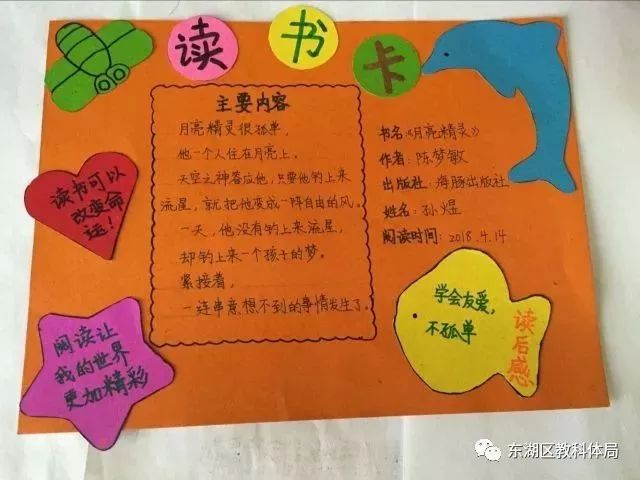 读书卡
主要内容
月亮精灵很孤单，
他一个人住在月亮上。
天空之神答应他，只要他钓上来
流星，就把他变成一阵自由的风。
一天，他没有钓上来流星，
却钓上来一个孩子的梦。
紧接着，
一连串意想不到的事情发生了。
书名：《月亮精灵》
作者：陈梦敏
出版社：海豚出版社
姓名：孙煜
阅读时间：2018.4.14
读书可以
改变命
运！
阅读让
我的世界
更加精彩
学会友爱，
不孤单
读后感
东湖区教科体局